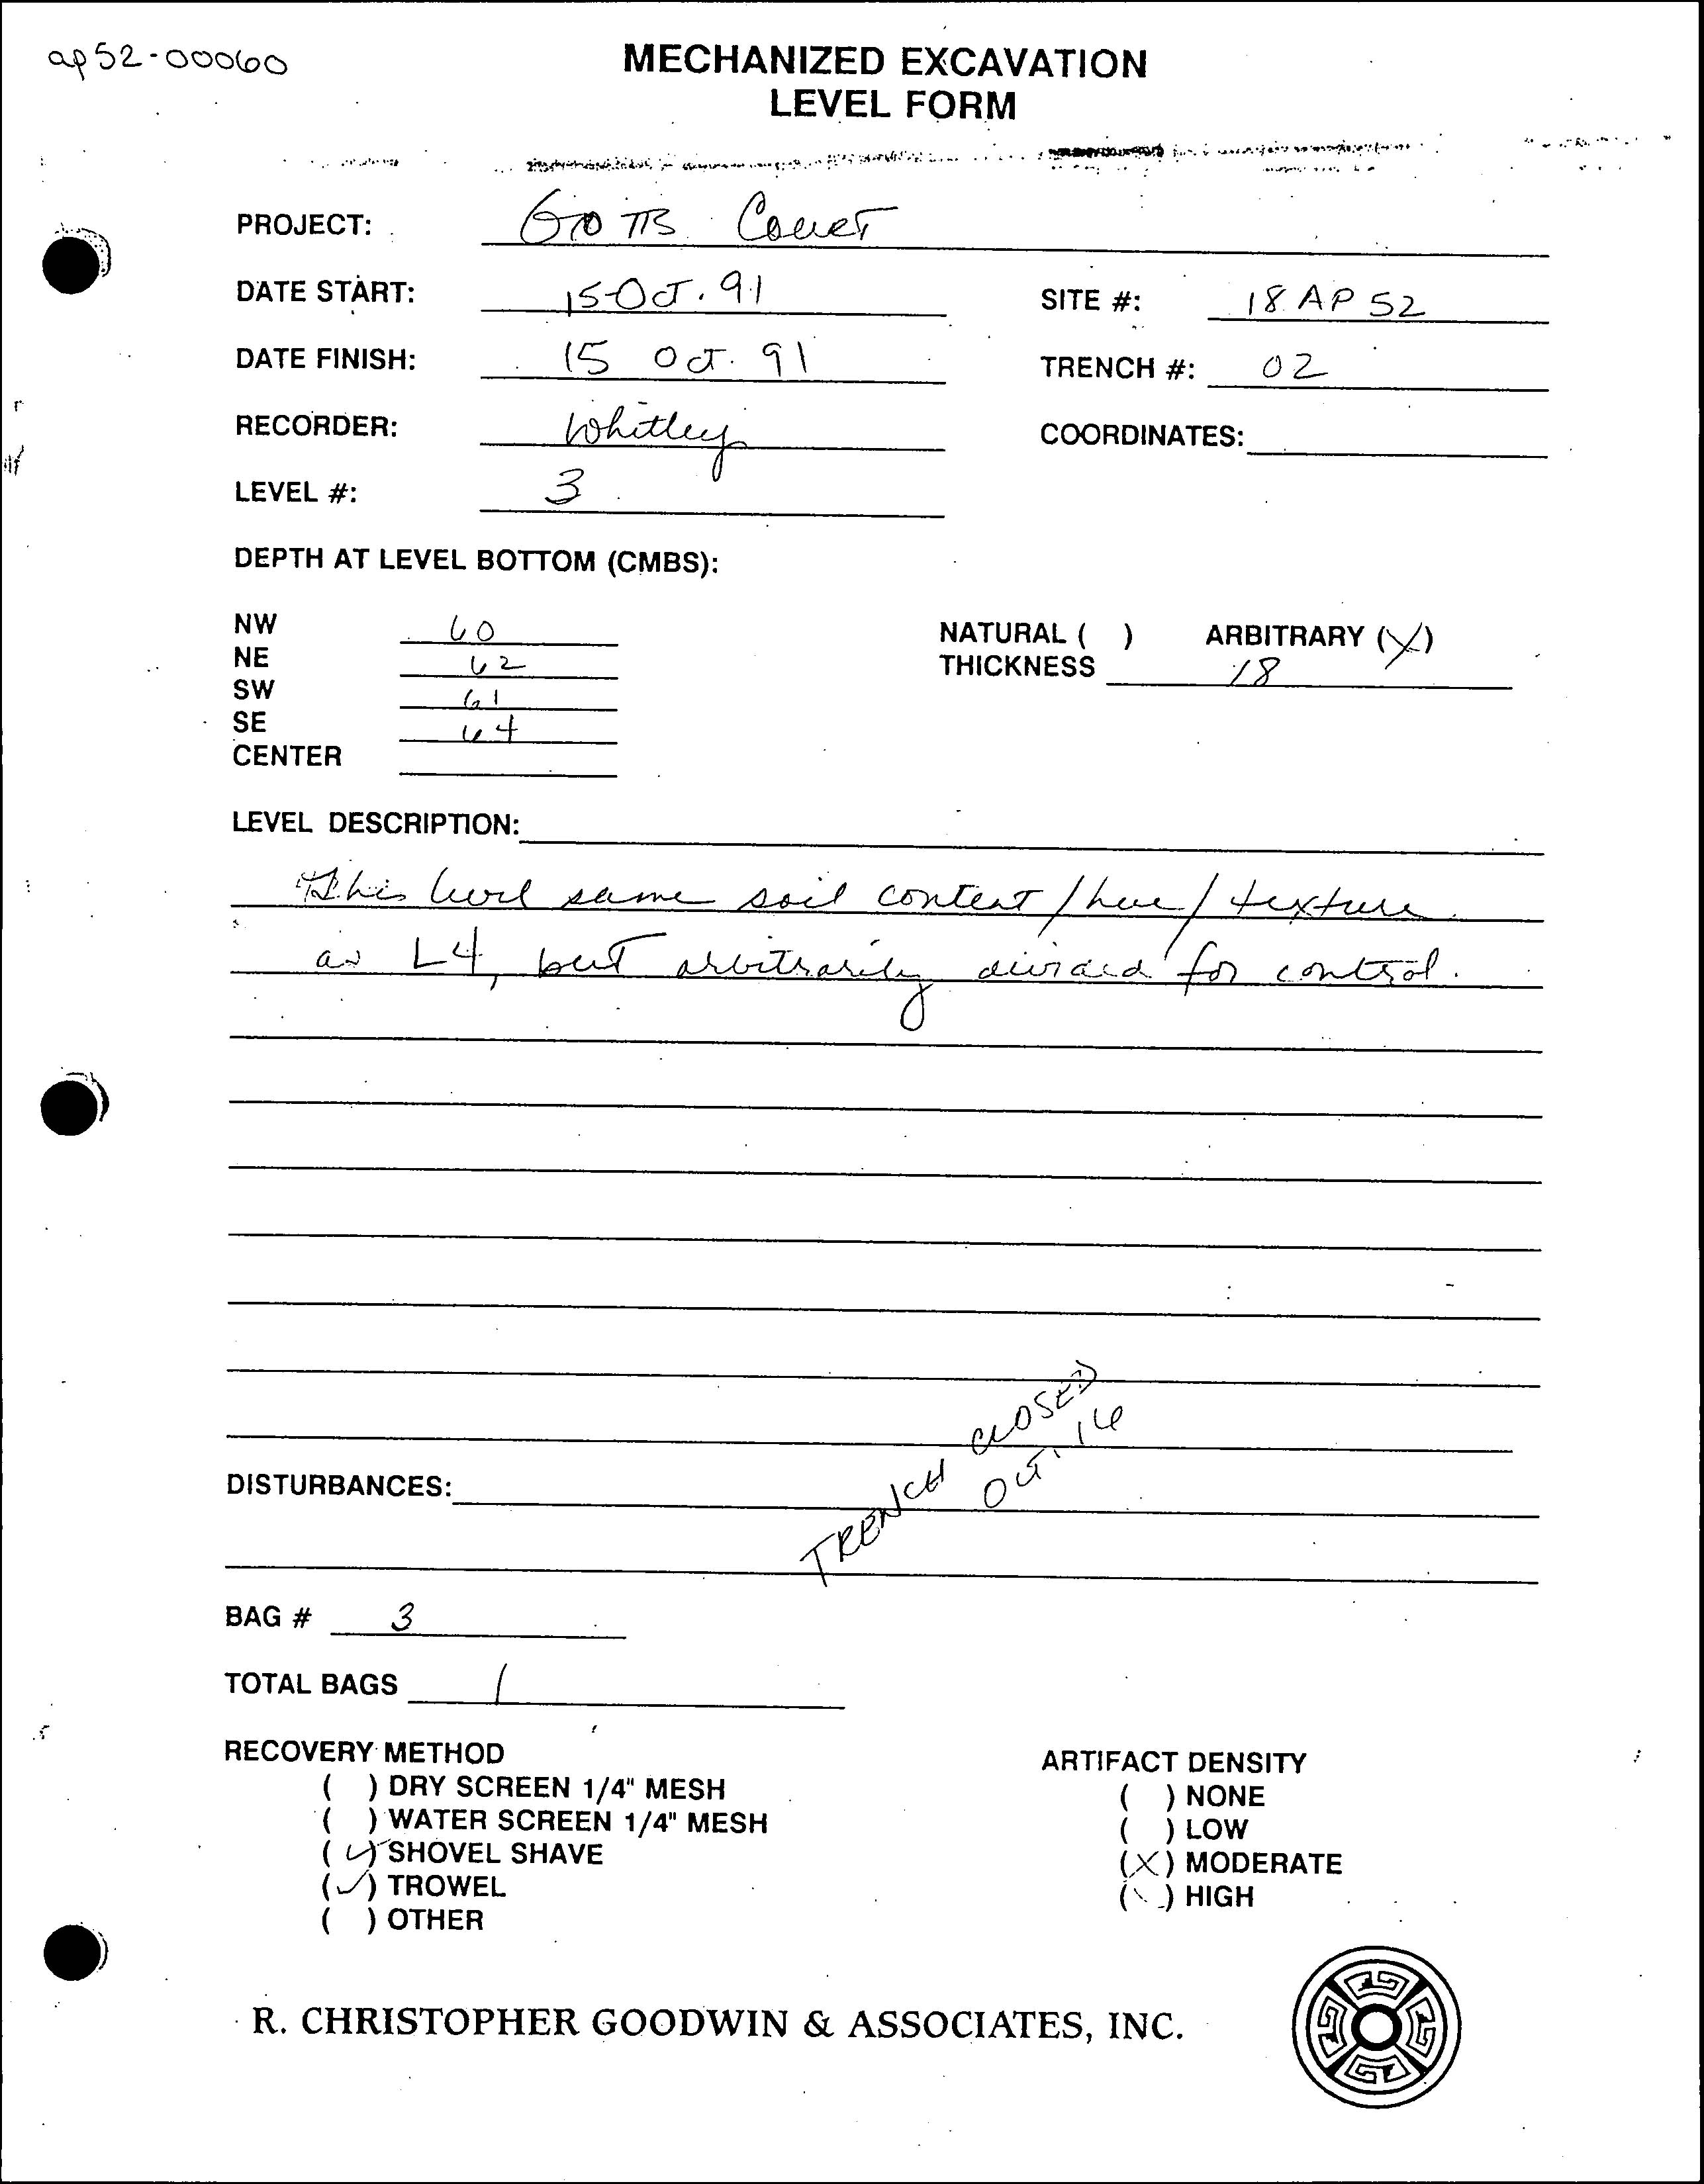 ap52-00060
MECHANIZED EXCAVATION
LEVEL FORM
PROJECT: Gotts Court
DATE START: 15 Oct. 91
SITE #: 18 AP 52
DATE FINISH: 15 Oct. 91
TRENCH #: 02
RECORDER: Whitley
COORDINATES:
LEVEL #: 3
DEPTH AT LEVEL BOTTOM (CMBS):
NW 60
NATURAL ( ) ARBITRARY (X)
NE 62
THICKNESS 18
SW 61
SE 64
CENTER
LEVEL DESCRIPTION:
This level same soil content/hue/texture
as L4, but arbitrarily divided for control.
TRENCH CLOSED
Oct. 16
DISTURBANCES:
BAG # 3
TOTAL BAGS 1
RECOVERY METHOD
( ) DRY SCREEN 1/4" MESH
( ) WATER SCREEN 1/4" MESH
(✓) SHOVEL SHAVE
(✓) TROWEL
( ) OTHER
ARTIFACT DENSITY
( ) NONE
( ) LOW
(X) MODERATE
( ) HIGH
R. CHRISTOPHER GOODWIN & ASSOCIATES, INC.